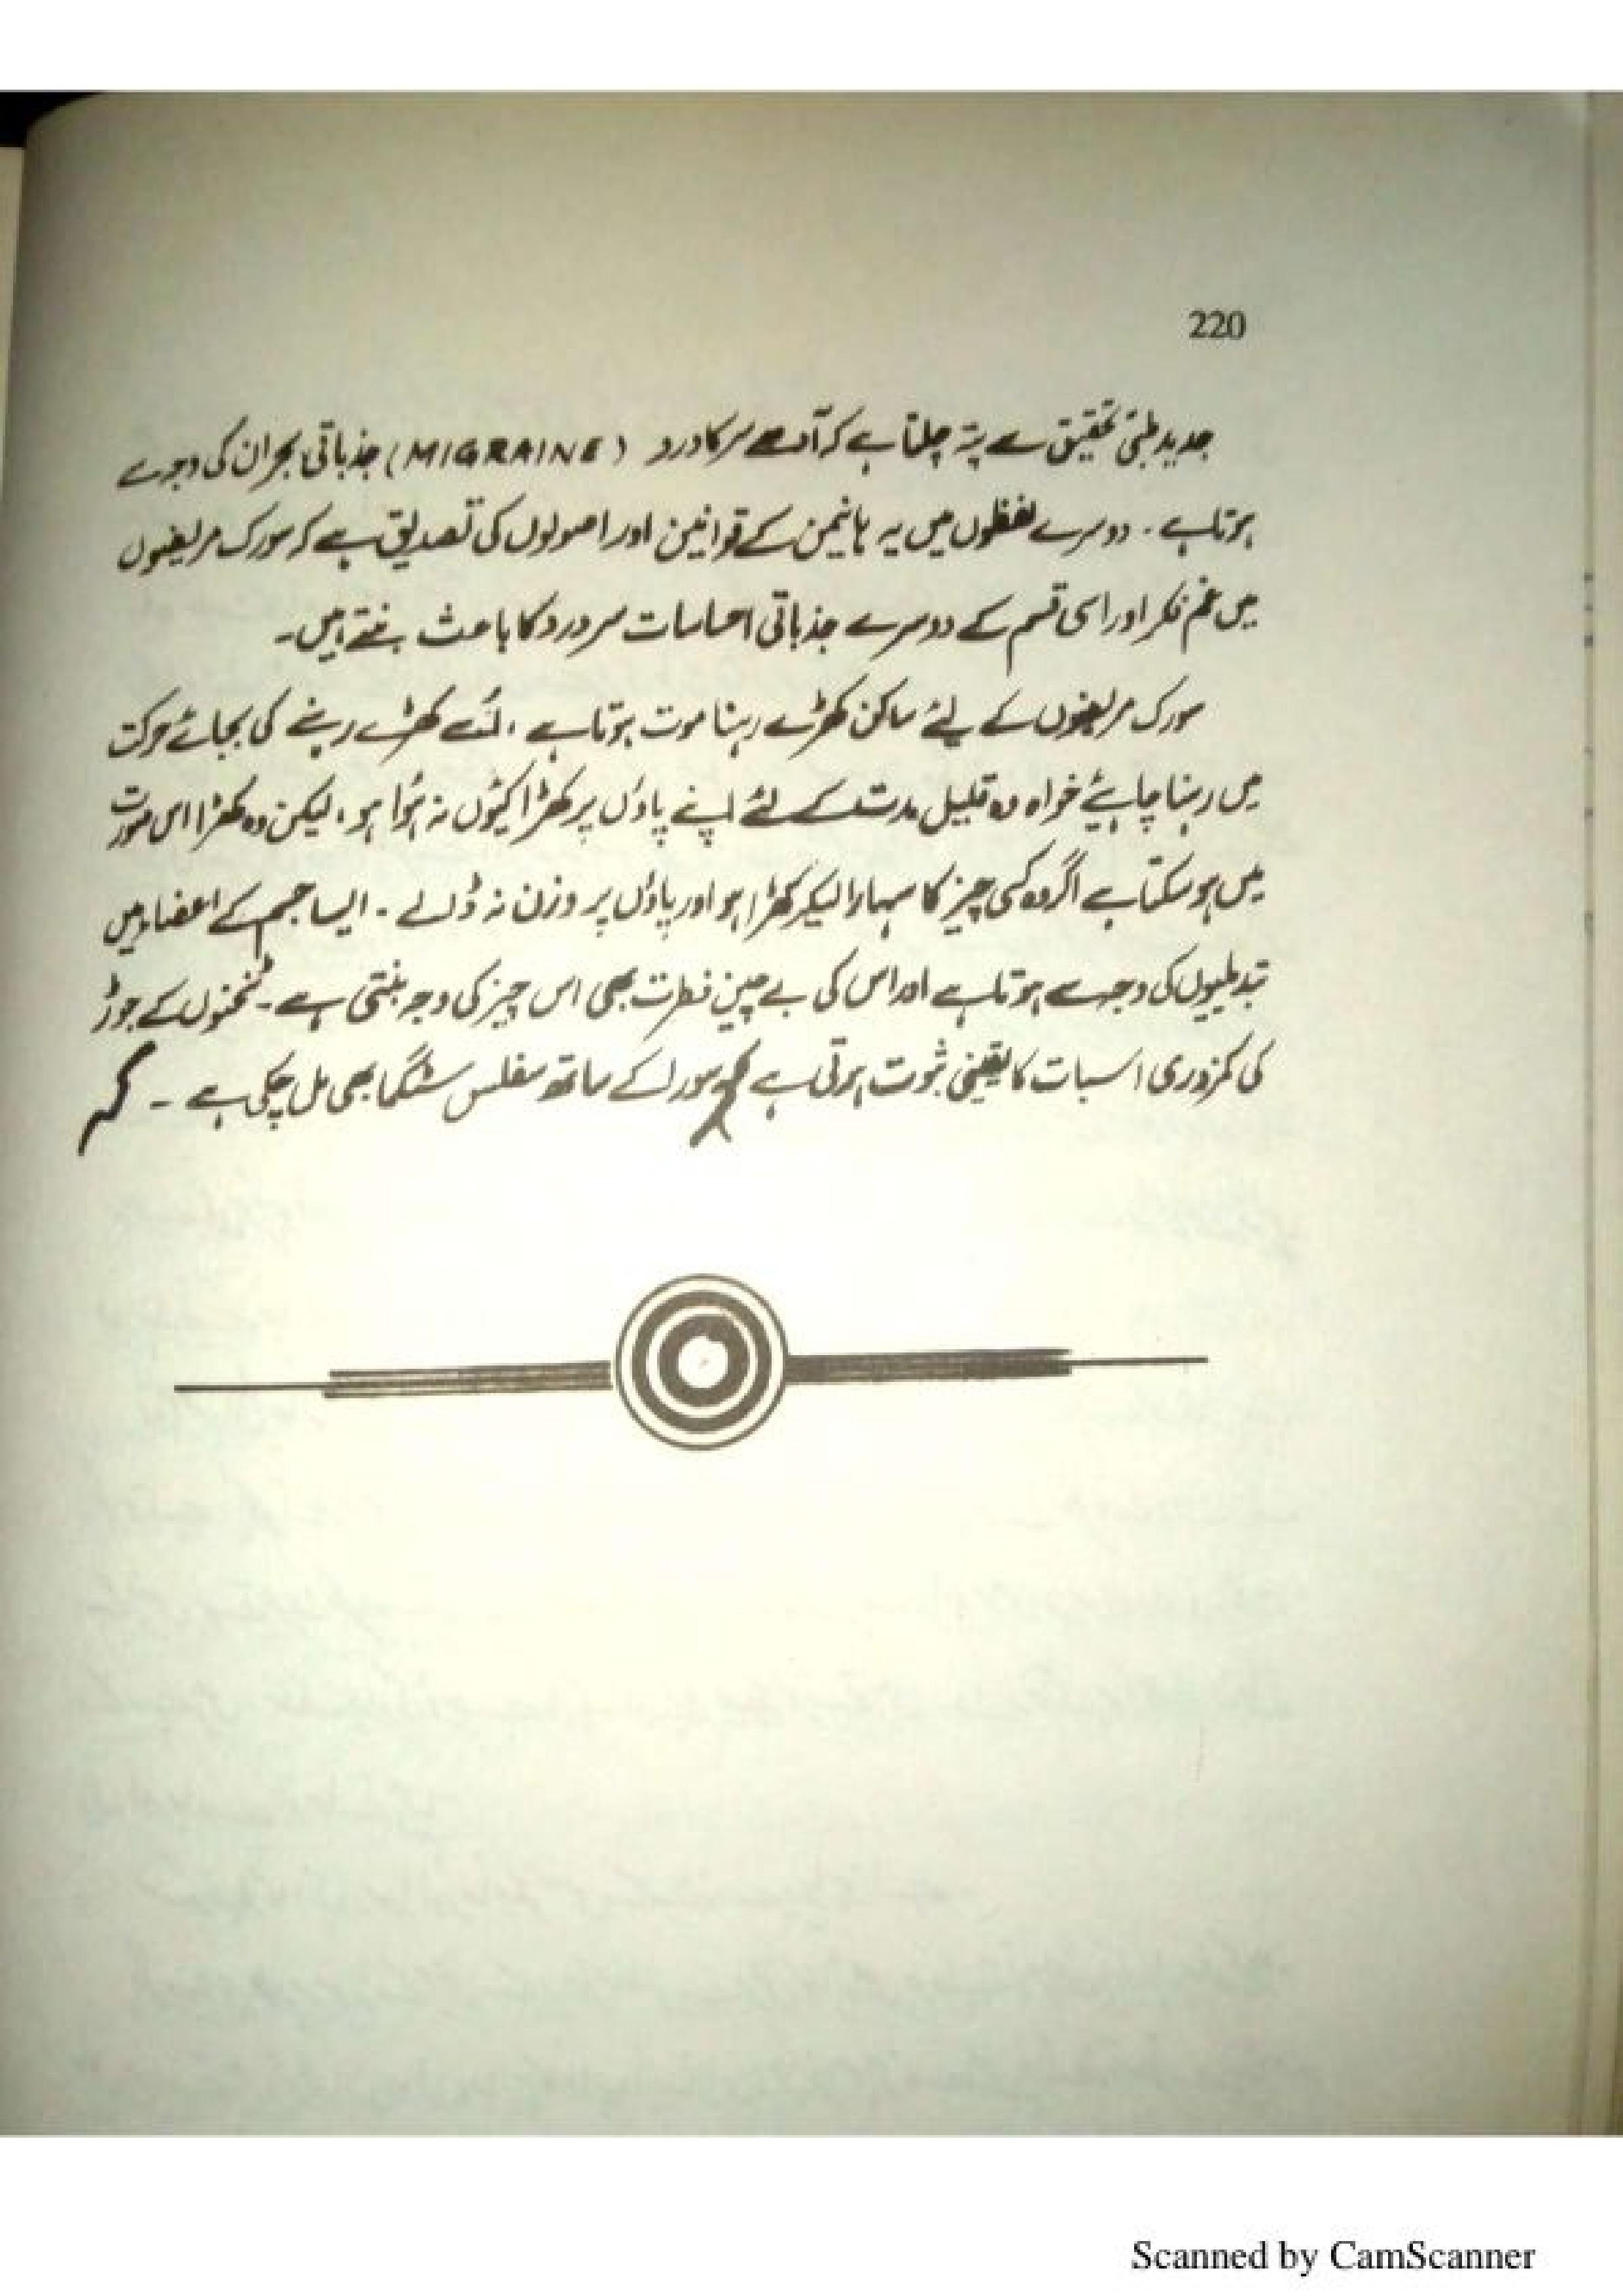 220
جدید طبی تحقیق سے پتہ چلتا ہے کہ آدھے سر کا درد (MIGRAINE) جذباتی بحران کی وجہ سے
ہوتا ہے ۔ دوسرے لفظوں میں یہ ہانیمن کے قوانین اور اصولوں کی تصدیق ہے کہ سورک مریضوں
میں غم فکر اور اسی قسم کے دوسرے جذباتی احساسات سر درد کا باعث بنتے ہیں۔
سورک مریضوں کے لئے ساکن کھڑے رہنا موت ہوتا ہے ، اُسے کھڑے رہنے کی بجائے حرکت
میں رہنا چاہیئے خواہ وہ قلیل مدت کے لئے اپنے پاؤں پر کھڑا کیوں نہ ہُوا ہو ، لیکن وہ کھڑا اس صورت
میں ہو سکتا ہے اگر وہ کسی چیز کا سہارا لیکر کھڑا ہو اور پاؤں پر وزن نہ ڈالے ۔ ایسا جسم کے اعضاء میں
تبدیلیوں کی وجہ سے ہوتا ہے اور اس کی بے چین فطرت بھی اس چیز کی وجہ بنتی ہے ۔ ٹخنوں کے جوڑ
کی کمزوری اس بات کا یقینی ثبوت ہوتی ہے کہ سورا کے ساتھ سفلس شگما بھی مل چکی ہے ۔
Scanned by CamScanner